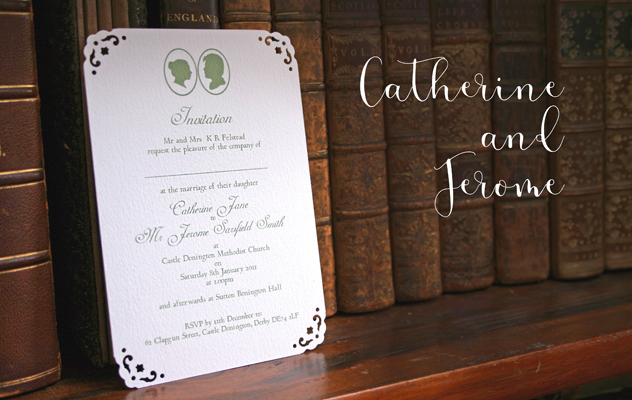 ENGLAND
Invitation
Mr and Mrs K R Felstead
request the pleasure of the company of
at the marriage of their daughter
Catherine Jane
to
Mr Jerome Sarsfield Smith
at
Castle Denington Methodist Church
on
Saturday 8th January 2011
at 1:00pm
and afterwards at Sutton Benington Hall
RSVP by 11th December to:
62 Clapgun Street, Castle Denington, Derby DE74 2LF
Catherine
and
Jerome